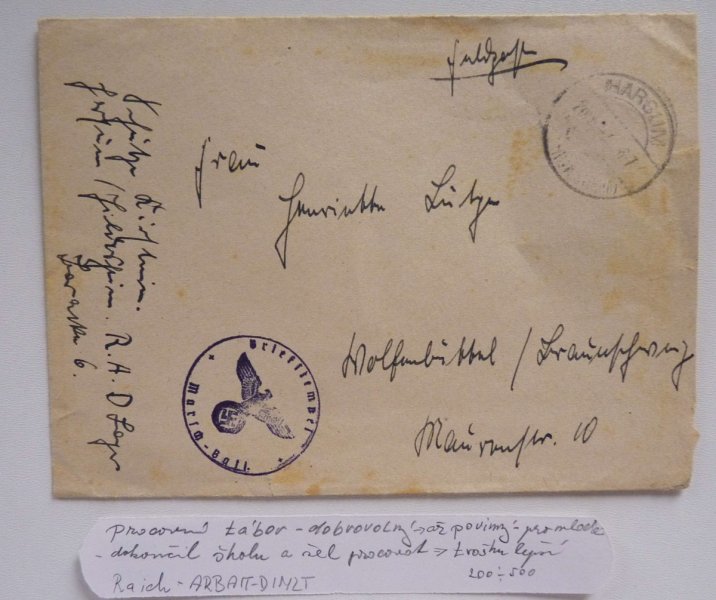 Feldpost
HARSUM
Frau
Henriette Lütge
Wolfenbüttel / Braunschweig
Mauernstr. 10
Schütze
Harsum / Hildesheim. R.A.D Lager
Baracke 6.
Briefstempel
pracovní tábor - dobrovolný → až povinný - pro mladé
- dokončil školu a šel pracovat → trošku lepší
Raich - ARBAIT-DINZT 200 ÷ 500